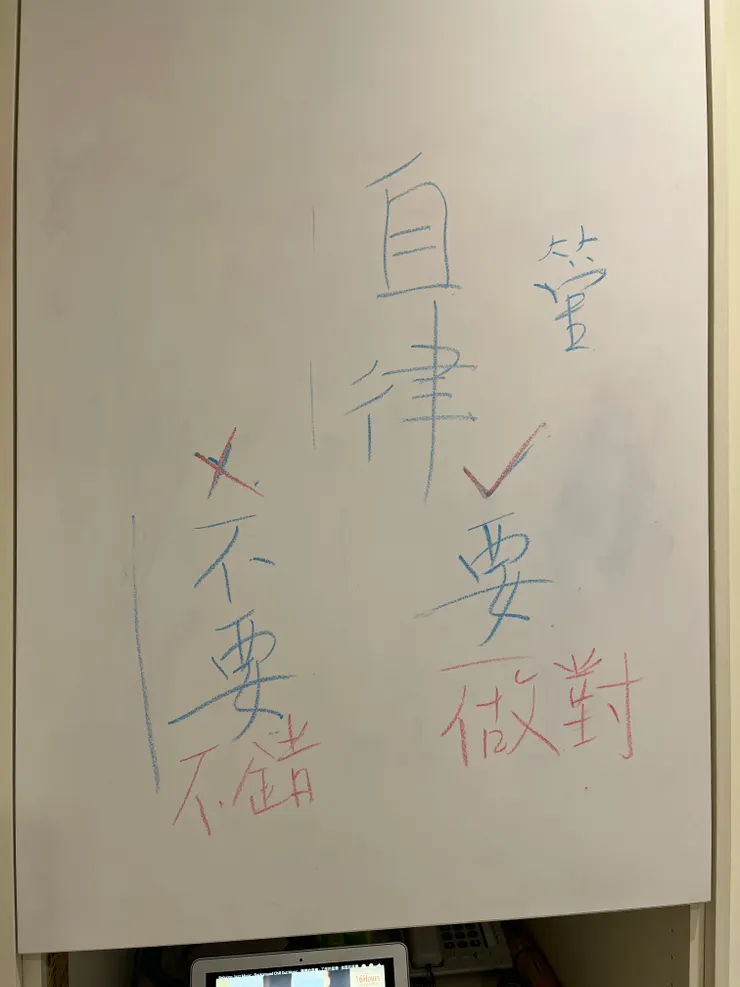 自律
管
不要
不錯
要
做對